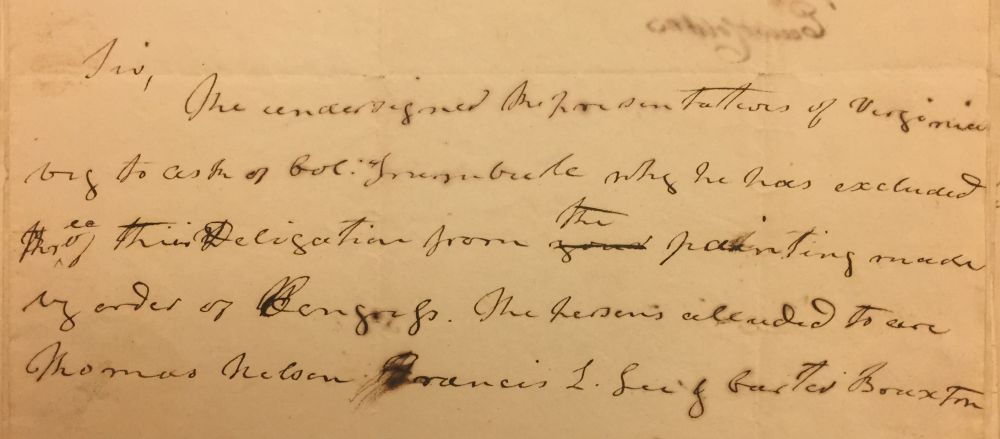 Sir,
The undersigned Representatives of Virginia
beg to ask of Col: Trumbull why he has excluded
three of their Deligation from your the painting made
by order of Congress. The persons alluded to are
Thomas Nelson Francis L. Lee & Carter Braxton